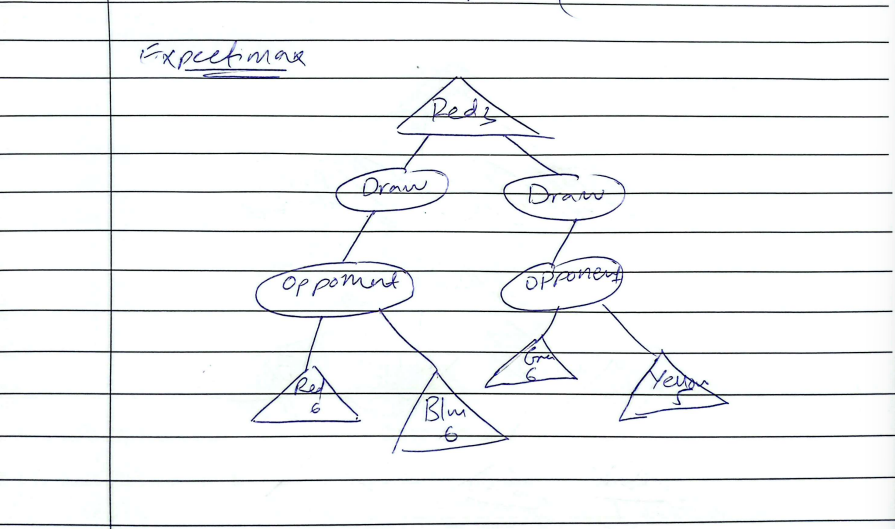 Expectimax
Red 3
Draw Draw
Opponent Opponent
Red
6
Blu
6
Gre
6
Yellow
5